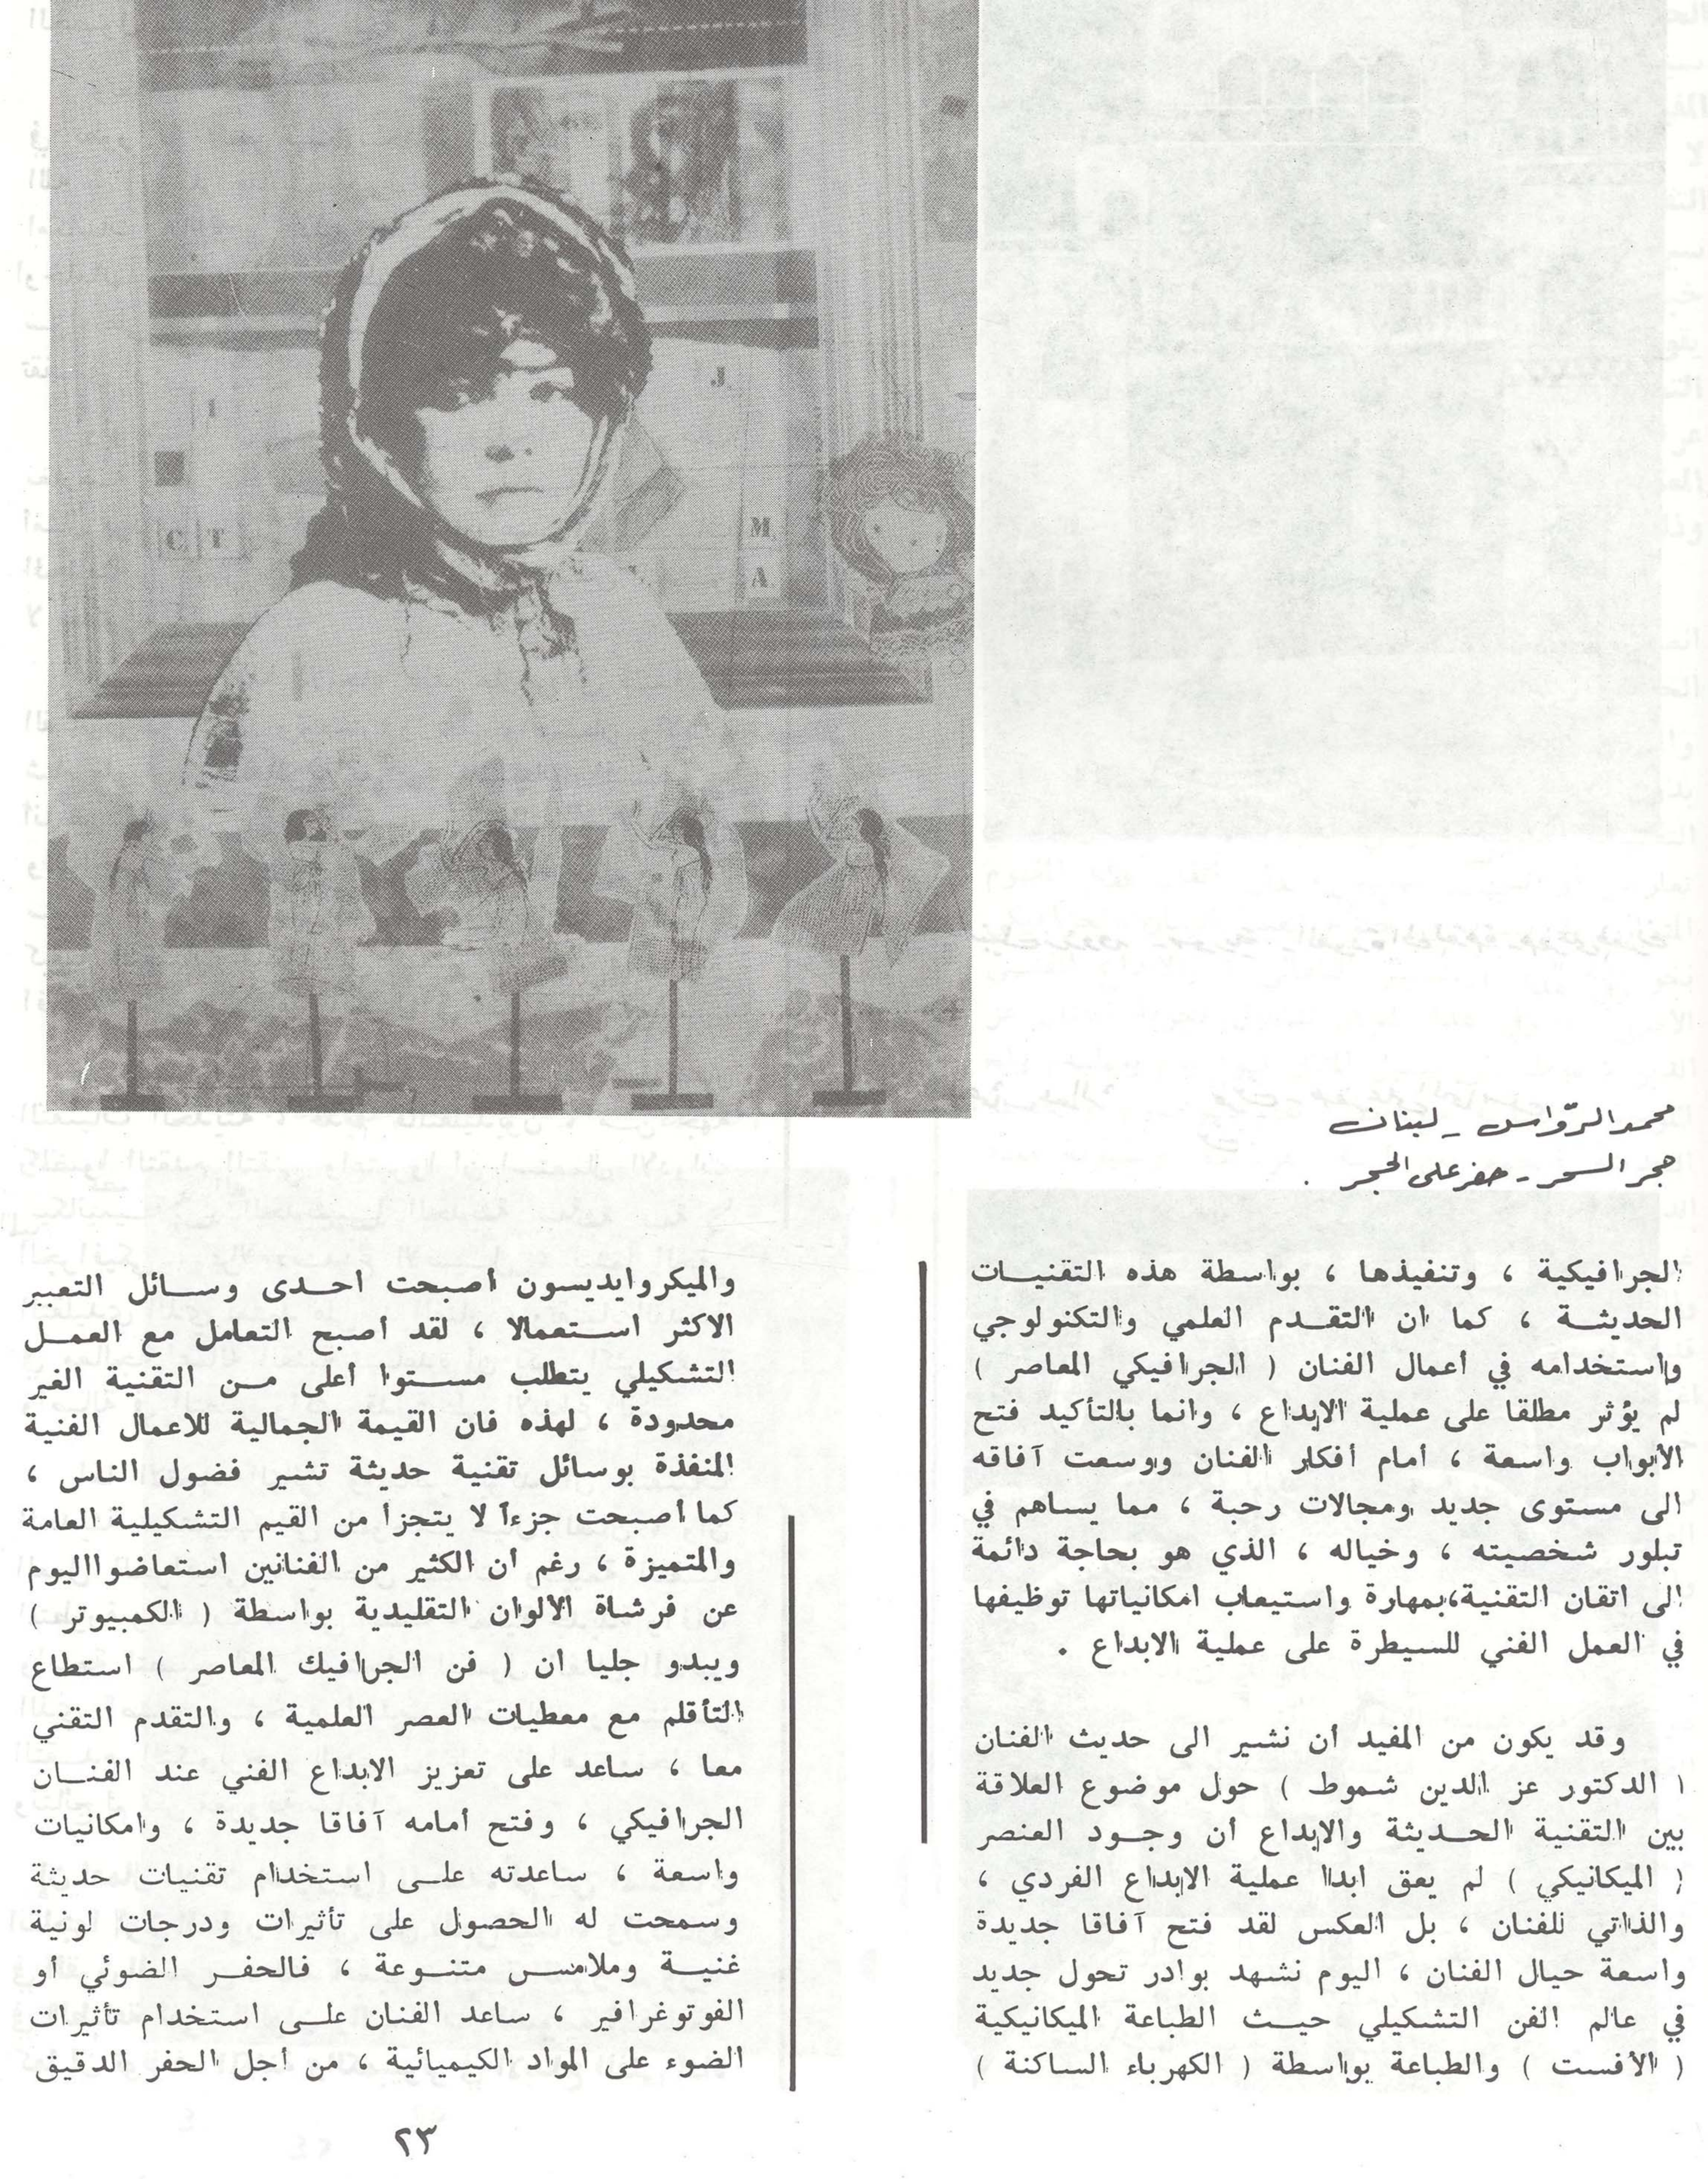 J.
C T
M.
A
محمد الرّواس ـ لبنان
حجر السحر ـ حفر على الحجر .
الجرافيكية ، وتنفيذها ، بواسطة هذه التقنيات
الحديثة ، كما ان التقدم العلمي والتكنولوجي
واستخدامه في أعمال الفنان ( الجرافيكي المعاصر )
لم يؤثر مطلقا على عملية الابداع ، وانما بالتأكيد فتح
الأبواب واسعة ، أمام أفكار الفنان ووسعت آفاقه
الى مستوى جديد ومجالات رحبة ، مما يساهم في
تبلور شخصيته ، وخياله ، الذي هو بحاجة دائمة
الى اتقان التقنية،بمهارة واستيعاب امكانياتها توظيفها
في العمل الفني للسيطرة على عملية الابداع .
وقد يكون من المفيد أن نشير الى حديث الفنان
( الدكتور عز الدين شموط ) حول موضوع العلاقة
بين التقنية الحديثة والابداع أن وجود العنصر
( الميكانيكي ) لم يعق ابدا عملية الابداع الفردي ،
والذاتي للفنان ، بل العكس لقد فتح آفاقا جديدة
واسعة حيال الفنان ، اليوم نشهد بوادر تحول جديد
في عالم الفن التشكيلي حيث الطباعة الميكانيكية
( الأفست ) والطباعة بواسطة ( الكهرباء الساكنة )
والميكروايديسون أصبحت احدى وسائل التعبير
الاكثر استعمالا ، لقد أصبح التعامل مع العمل
التشكيلي يتطلب مستوا أعلى من التقنية الغير
محدودة ، لهذه فان القيمة الجمالية للاعمال الفنية
المنفذة بوسائل تقنية حديثة تشير فضول الناس ،
كما أصبحت جزءاً لا يتجزأ من القيم التشكيلية العامة
والمتميزة ، رغم أن الكثير من الفنانين استعاضوا اليوم
عن فرشاة الألوان التقليدية بواسطة ( الكمبيوتر )
ويبدو جليا ان ( فن الجرافيك المعاصر ) استطاع
التأقلم مع معطيات العصر العلمية ، والتقدم التقني
معا ، ساعد على تعزيز الابداع الفني عند الفنان
الجرافيكي ، وفتح أمامه آفاقا جديدة ، وامكانيات
واسعة ، ساعدته على استخدام تقنيات حديثة
وسمحت له الحصول على تأثيرات ودرجات لونية
غنية وملامس متنوعة ، فالحفر الضوئي أو
الفوتوغرافير ، ساعد الفنان على استخدام تأثيرات
الضوء على المواد الكيميائية ، من أجل الحفر الدقيق
٢٣